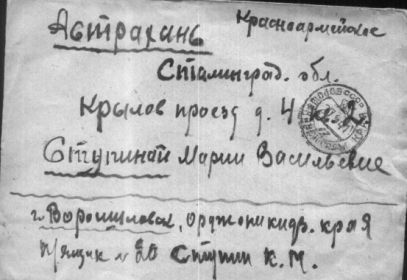 Красноармейское
Астрахань
Сталинград. обл.
Крылов проезд д. 4
Ступиной Марии Васильевне
г. Ворошиловск, орджоникидз. края
п/ящик № 20 Ступин К. М.